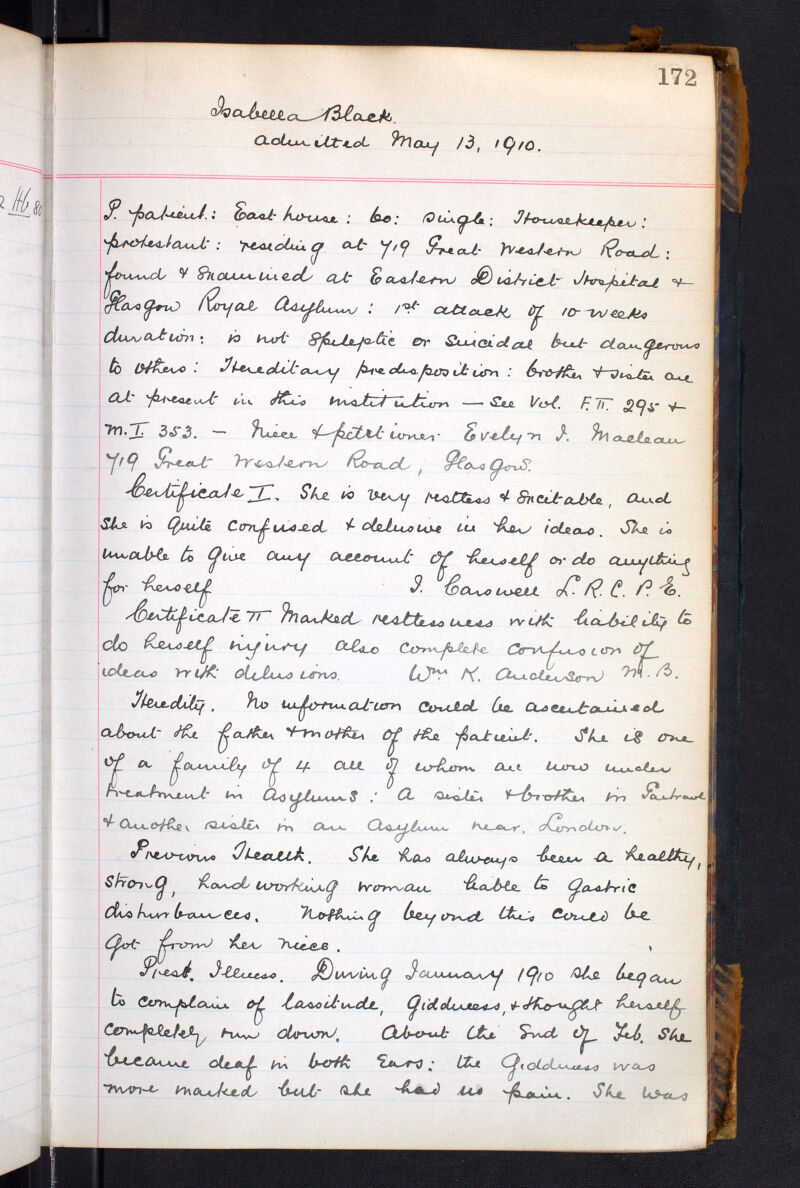 172
Isabella Black.
admitted May 13, 1910.
Hb 80
P. patient: East house: 60: single: Housekeeper:
protestant: residing at 719 Great Western Road:
found & Examined at Eastern District Hospital &
Glasgow Royal Asylum: 1st attack of 10 weeks
duration: is not Epileptic or Suicidal but dangerous
to others: Hereditary predisposition: brother & sister are
at present in this institution — See Vol. F.II. 295 &
M.I 353. – Niece & petitioner Evelyn I. Maclean
719 Great Western Road, Glasgow.
Certificate I. She is very restless & Excitable, and
She is quite confused & delusive in her ideas. She is
unable to Give any account of herself or do anything
for herself I. Carswell L.R.C.P.E.
Certificate II Marked restlessness with liability to
do herself injury also complete confusion of
ideas with delusions. Wm K. Anderson M.B.
Heredity. No information could be ascertained
about the father & mother of the patient. She is one
of a family of 4 all of whom are now under
treatment in asylums: A sister & brother in Gartnavel
& another sister in an Asylum near London.
Previous Health. She has always been a healthy,
strong, hard working woman liable to Gastric
disturbances. Nothing beyond this could be
Got from her niece.
Prest. Illness. During January 1910 she began
to complain of lassitude, Giddiness, & thought herself
completely run down. About the End of Feb. She
became deaf in both Ears: the Giddiness was
more marked but she had no pain. She was